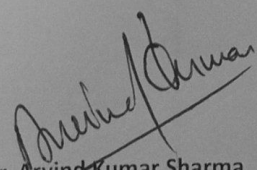 Arvind Kumar
Arvind Kumar Sharma